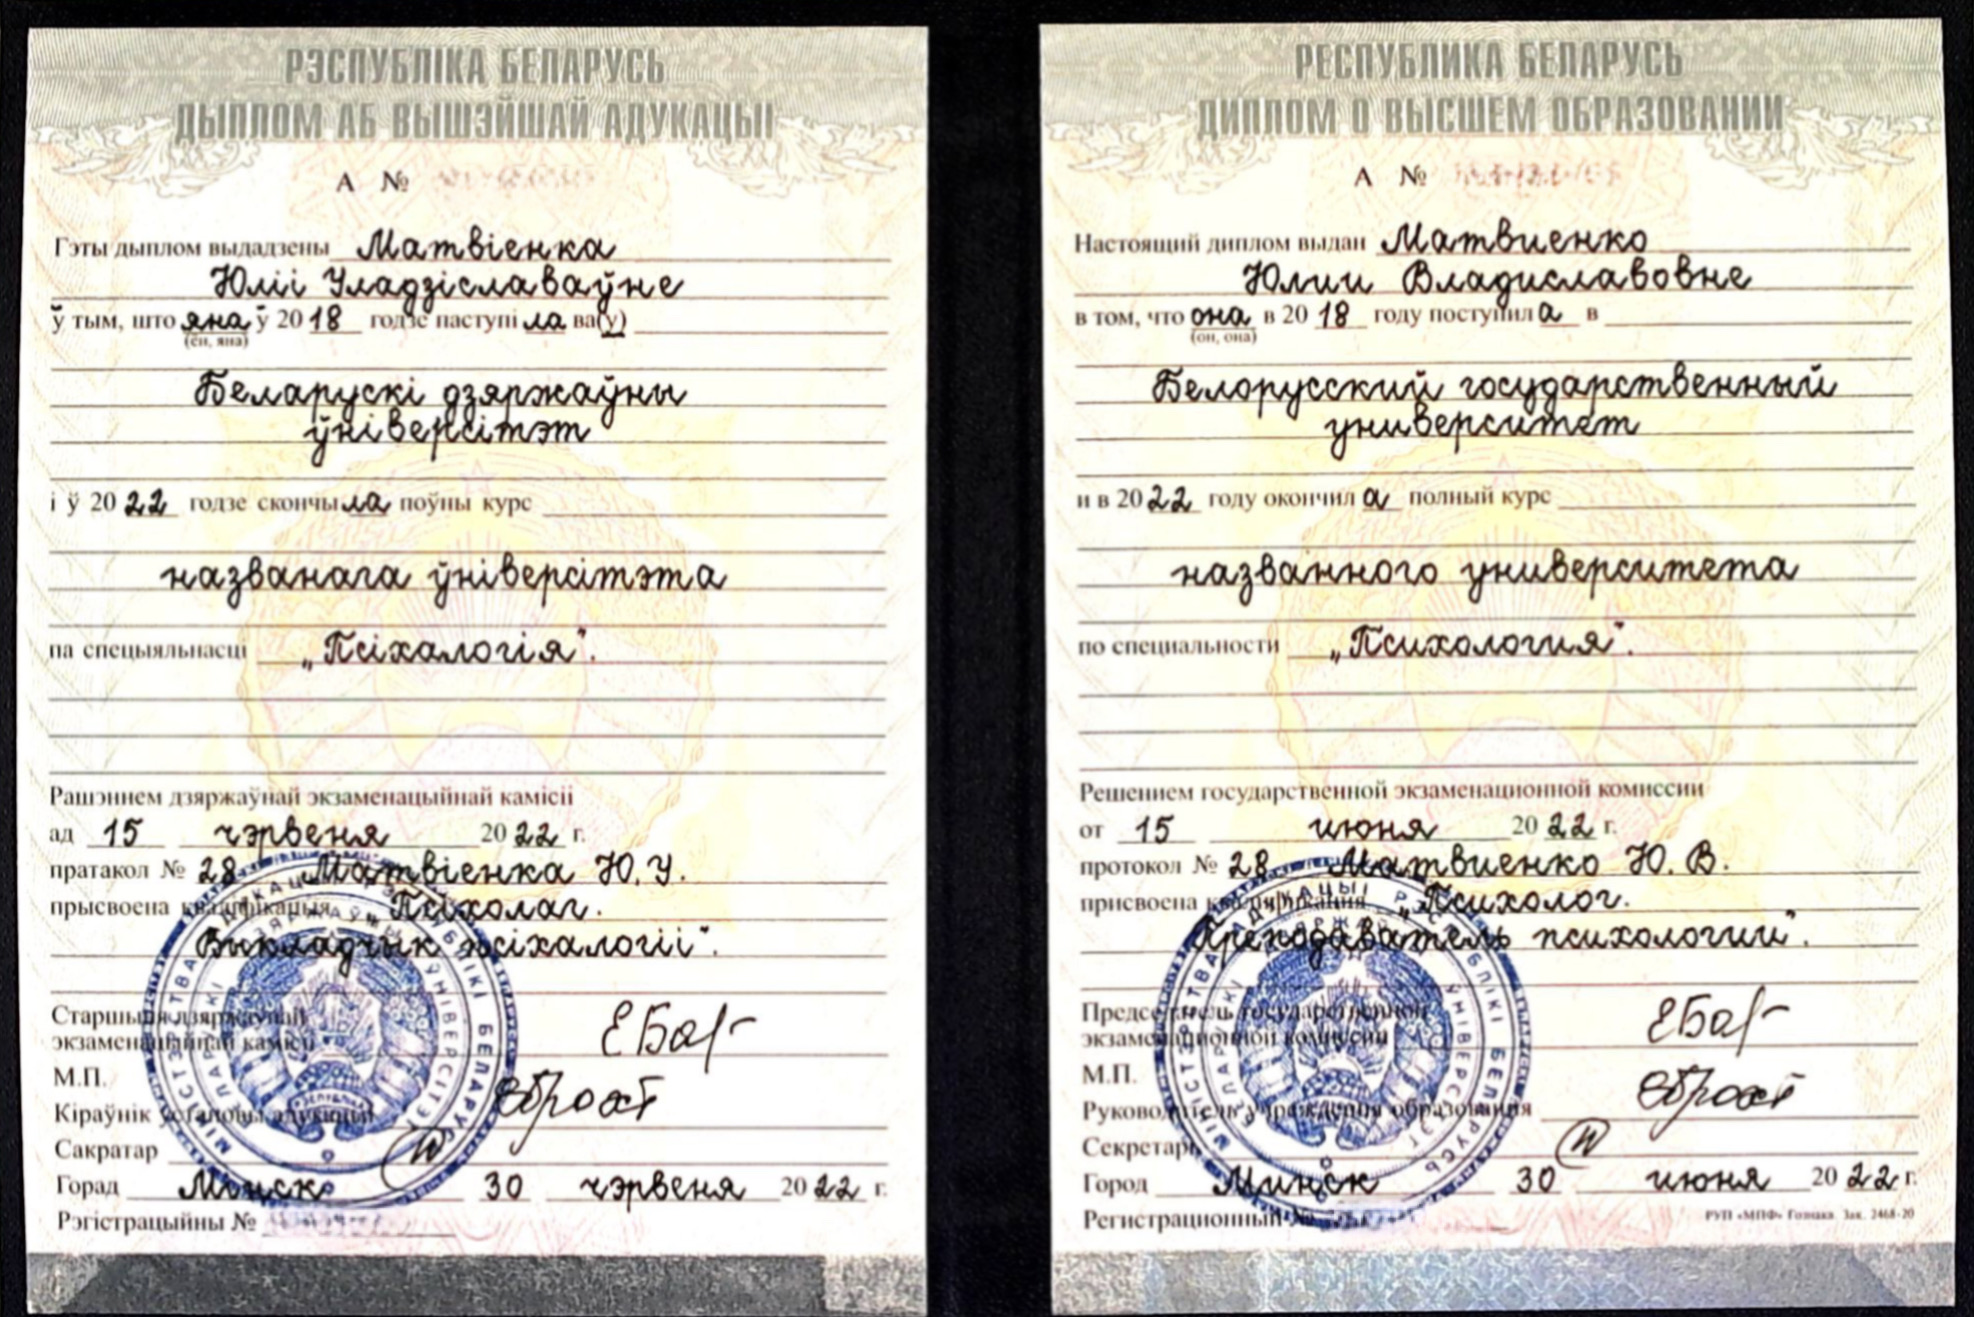 РЭСПУБЛІКА БЕЛАРУСЬ
ДЫПЛОМ АБ ВЫШЭЙШАЙ АДУКАЦЫІ
А №
Гэты дыплом выдадзены Матвіенка
Юліі Уладзіславаўне
ў тым, што яна ў 2018 годзе паступіла ва(у)
(ён, яна)
Беларускі дзяржаўны
ўніверсітэт
і ў 2022 годзе скончыла поўны курс
названага ўніверсітэта
па спецыяльнасці „Псіхалогія".
Рашэннем дзяржаўнай экзаменацыйнай камісіі
ад 15 чэрвеня 2022 г.
пратакол № 28 Матвіенка Ю.У.
прысвоена кваліфікацыя „Псіхолаг.
Выкладчык псіхалогіі".
Старшыня дзяржаўнай
экзаменацыйнай камісіі
М.П.
Кіраўнік установы адукацыі
Сакратар
Горад Мінск 30 чэрвеня 2022 г.
Рэгістрацыйны №
МІНІСТЭРСТВА АДУКАЦЫІ РЭСПУБЛІКІ БЕЛАРУСЬ
БЕЛАРУСКІ ДЗЯРЖАЎНЫ ЎНІВЕРСІТЭТ
РЕСПУБЛИКА БЕЛАРУСЬ
ДИПЛОМ О ВЫСШЕМ ОБРАЗОВАНИИ
А №
Настоящий диплом выдан Матвиенко
Юлии Владиславовне
в том, что она в 2018 году поступила в
(он, она)
Белорусский государственный
университет
и в 2022 году окончила полный курс
названного университета
по специальности „Психология".
Решением государственной экзаменационной комиссии
от 15 июня 2022 г.
протокол № 28 Матвиенко Ю.В.
присвоена квалификация „Психолог.
Преподаватель психологии".
Председатель государственной
экзаменационной комиссии
М.П.
Руководитель учреждения образования
Секретарь
Город Минск 30 июня 2022 г.
Регистрационный №
РУП «МПФ» Гознака. Зак. 2468-20
МІНІСТЭРСТВА АДУКАЦЫІ РЭСПУБЛІКІ БЕЛАРУСЬ
БЕЛАРУСКІ ДЗЯРЖАЎНЫ ЎНІВЕРСІТЭТ